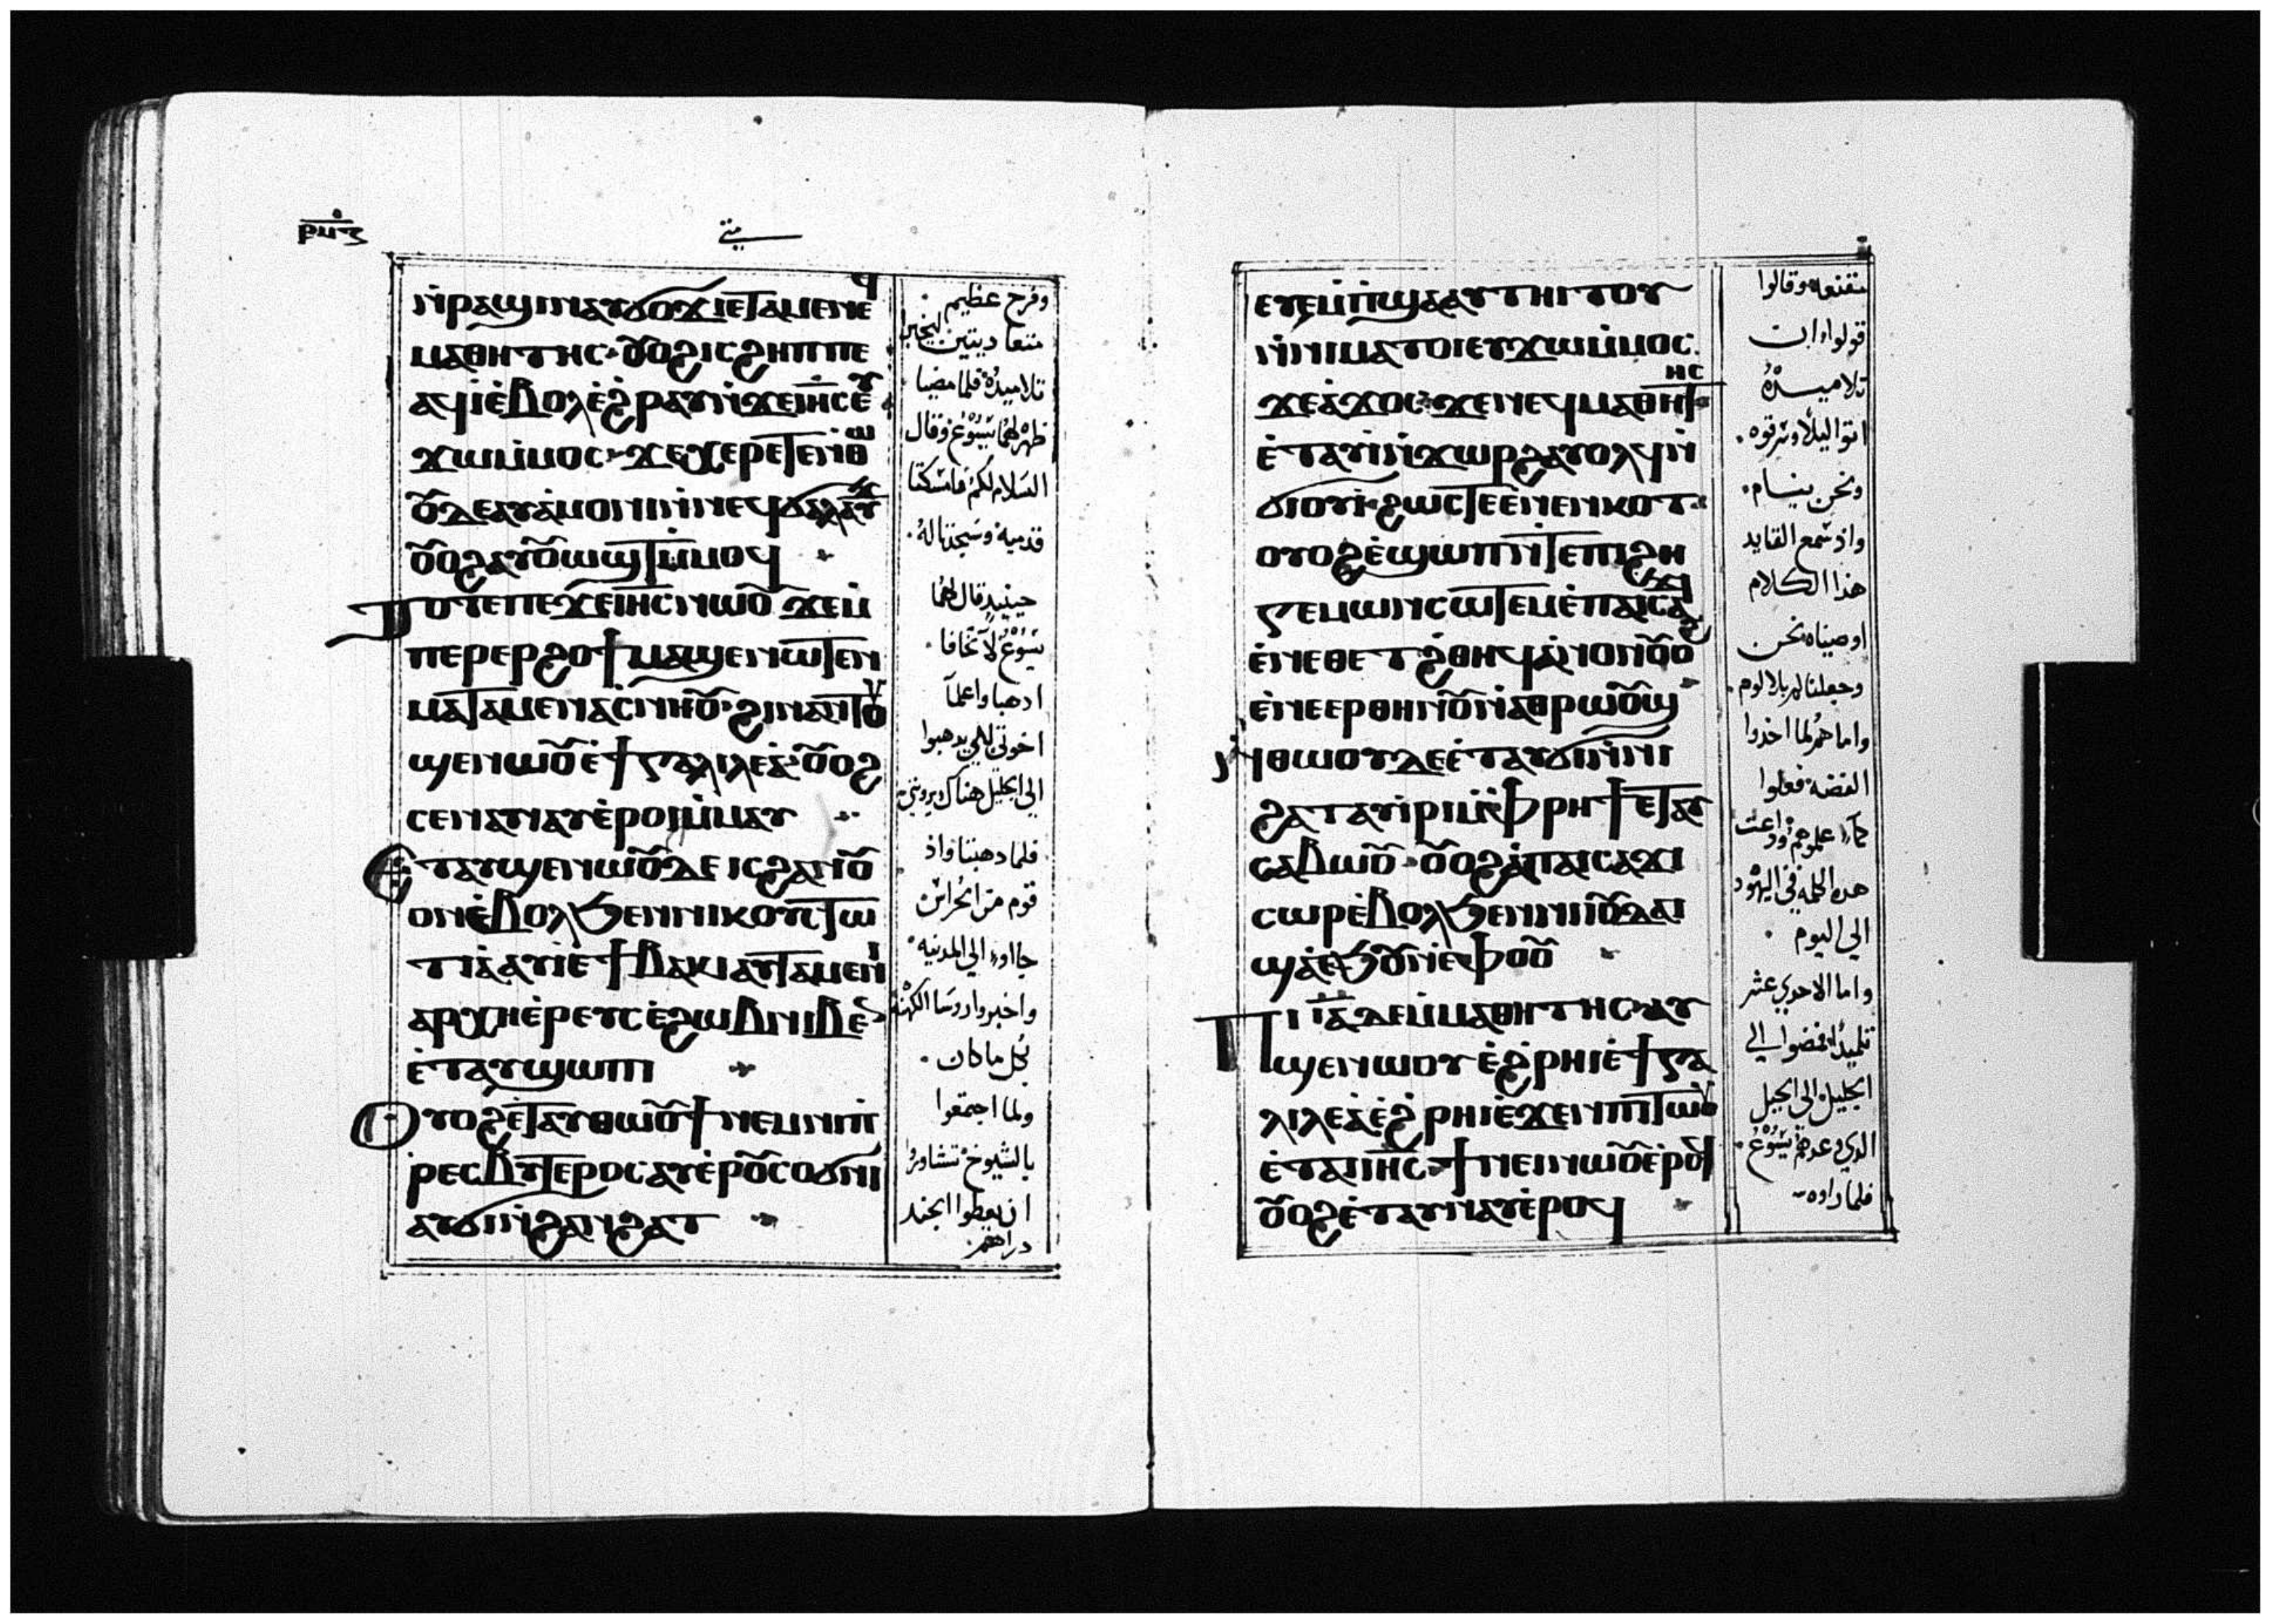 ⲣⲛⲍ
متي
ⲛⲣⲁϣⲓ ⲛⲁⲩϭⲟϫⲓ ⲉⲧⲁⲙⲉ ⲛⲉϥ
ⲙⲁⲑⲏⲧⲏⲥ ⲟⲩⲟϩ ⲓⲥ ϩⲏⲡⲡⲉ
ⲁϥⲓ ⲉⲃⲟⲗ ⲉϩⲣⲁⲩ ⲛϫⲉ ⲓⲏⲥ ⲉϥ
ϫⲱ ⲙⲙⲟⲥ ϫⲉ ⲭⲉⲣⲉⲧⲉ ⲛⲑⲱ
ⲟⲩ ⲇⲉ ⲁⲩⲁⲙⲟⲛⲓ ⲛⲛⲉϥϭⲁⲗⲁⲩϫ
ⲟⲩⲟϩ ⲁⲩⲟⲩⲱϣⲧ ⲙⲙⲟϥ
ⲧⲟⲧⲉ ⲡⲉϫⲉ ⲓⲏⲥ ⲛⲱⲟⲩ ϫⲉ ⲙ
ⲡⲉⲣⲉⲣϩⲟϯ ⲙⲁϣⲉⲛⲱⲧⲉⲛ
ⲙⲁⲧⲁⲙⲉ ⲛⲁⲥⲛⲏⲟⲩ ϩⲓⲛⲁ ⲛⲧⲟⲩ
ϣⲉⲛⲱⲟⲩ ⲉϯⲅⲁⲗⲓⲗⲉⲁ ⲟⲩⲟϩ
ⲥⲉⲛⲁⲛⲁⲩ ⲉⲣⲟⲓ ⲙⲙⲁⲩ
ⲉⲧⲁⲩϣⲉⲛⲱⲟⲩ ⲇⲉ ⲓⲥ ϩⲁⲛⲟⲩ
ⲟⲛ ⲉⲃⲟⲗ ϧⲉⲛ ⲛⲓⲕⲟⲩⲥⲧⲱ
ⲧⲓⲁ ⲁⲩⲓ ⲉϯⲃⲁⲕⲓ ⲁⲩⲧⲁⲙⲉ ⲛⲓ
ⲁⲣⲭⲏⲉⲣⲉⲩⲥ ⲉϩⲱⲃ ⲛⲓⲃⲉⲛ
ⲉⲧⲁⲩϣⲱⲡⲓ
ⲟⲩⲟϩ ⲉⲧⲁⲩⲑⲱⲟⲩϯ ⲛⲉⲙ ⲛⲓⲡ
ⲣⲉⲥⲃⲩⲧⲉⲣⲟⲥ ⲁⲩⲉⲣⲟⲩⲥⲟϭⲛⲓ
ⲁⲩϭⲓ ⲛϩⲁⲛϩⲁⲧ
وفرح عظيم
تلاميذه فلما مضيا
ظهر لهما يسوع وقال
السلام لكم فامسكتا
قدميه وسجدتا له
حينيد قال لهما
يسوع لا تخافا
ادهبا واعلما
اخوتي لكي يدهبوا
الي الجليل هناك يروني
فلما دهبتا واذ
قوم من الحراس
جااوا الي المدنيه
واخبروا روسا الكهنه
بكل ما كان
ولما اجتمعوا
بالشيوخ تشاوروا
ان يعطوا الجند
دراهم
ⲉⲩⲉⲙⲡϣⲁ ⲁⲩⲧⲏⲓⲧⲟⲩ
ⲛⲛⲓⲙⲁⲧⲟⲓ ⲉⲩϫⲱ ⲙⲙⲟⲥ
ϫⲉ ⲁϫⲟⲥ ϫⲉ ⲛⲉϥⲙⲁⲑⲏⲧⲏⲥ
ⲉⲧⲁⲩⲓ ⲛϫⲱⲣϩ ⲁⲩⲟⲗϥ ⲛ
ϭⲓⲟⲩⲓ ϩⲱⲥⲧⲉ ⲉⲛⲉⲛⲕⲟⲧ
ⲟⲩⲟϩ ⲉϣⲱⲡ ⲛⲧⲉ ⲡⲓϩⲏ
ⲅⲉⲙⲱⲛ ⲥⲱⲧⲉⲙ ⲉⲡⲁⲓⲥⲁϫⲓ
ⲉⲛⲉⲑⲉⲧϩⲑⲏϥ ⲁⲛⲟⲛ ⲟⲩⲟϩ
ⲉⲛⲉⲉⲣⲑⲏⲛⲟⲩ ⲛⲁⲑⲣⲱⲟⲩϣ
ⲛⲑⲱⲟⲩ ⲇⲉ ⲉⲧⲁⲩϭⲓ ⲛⲛⲓ
ϩⲁⲧ ⲁⲩⲓⲣⲓ ⲙⲫⲣⲏϯ ⲉⲧⲁⲩ
ⲥⲁⲃⲱⲟⲩ ⲟⲩⲟϩ ⲁ ⲡⲁⲓⲥⲁϫⲓ
ⲥⲱⲣ ⲉⲃⲟⲗ ϧⲉⲛ ⲛⲓⲓⲟⲩⲇⲁⲓ
ϣⲁ ⲉϧⲟⲩⲛ ⲉⲫⲟⲟⲩ
ⲡⲓⲓⲁ ⲇⲉ ⲙⲙⲁⲑⲏⲧⲏⲥ ⲁⲩ
ϣⲉⲛⲱⲟⲩ ⲉϩⲣⲏⲓ ⲉϯⲅⲁ
ⲗⲓⲗⲉⲁ ⲉϩⲣⲏⲓ ⲉϫⲉⲛ ⲡⲓⲧⲱⲟⲩ
ⲉⲧⲁ ⲓⲏⲥ ϯⲙⲉⲓⲛ ⲛⲱⲟⲩ ⲉⲣⲟϥ
ⲟⲩⲟϩ ⲉⲧⲁⲩⲛⲁⲩ ⲉⲣⲟϥ
مقنعه وقالوا
قولوا ان
تلاميده
اتوا ليلا وسرقوه
ونحن نيام
واذ سمع القايد
هذا الكلام
ارضيناه نحن
وجعلنا لكم بلا لوم
واما هم لما اخدوا
الفضه فعلوا
كما علموهم وداعت
هده الكلمه في اليهود
الي اليوم
واما الاحدي عشر
تلميدا فمضوا الي
الجليل الي الجبل
الدي وعدهم يسوع
فلما راوه